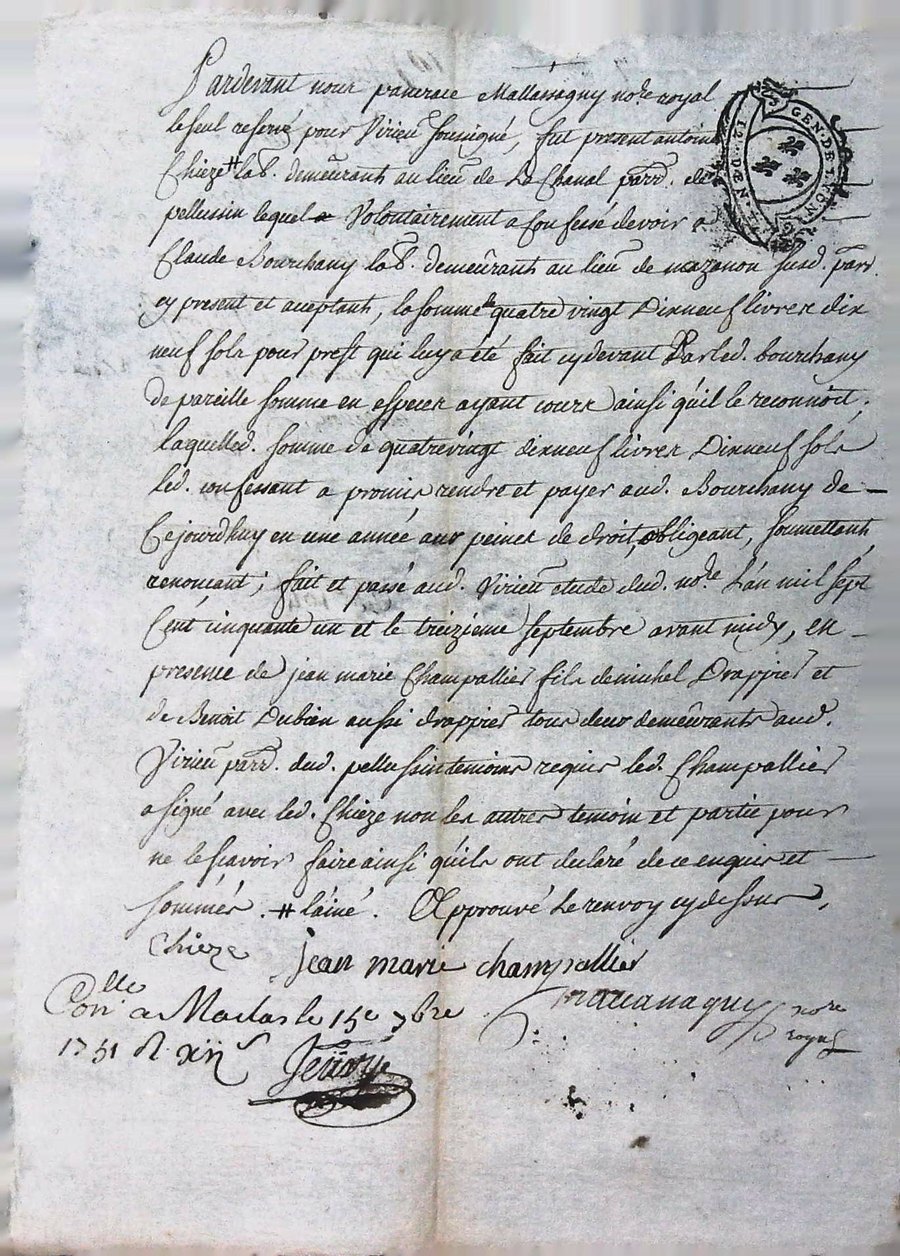 Pardevant nous pancrace Mallassagny no.re royal
le seul reservé pour Virieu soussigné, fut present antoine
Chieze # lab. demeurant au lieu de La Chanal parr. de
pellussin lequel a Volontairement a confessé devoir a
Claude Bourchany lab. demeurant au lieu de mazanon susd. parr.
cy present et aceptant, la somme de quatre vingt Dixneuf livres dix
neuf sols pour prest qui luy a été fait cydevant Par led. bourchany
de pareille somme en especes ayant cours ainsi qu'il le reconnoit,
laquelled. somme de quatrevingt dixneuf livres Dixneuf sols
led. confessant a promis rendre et payer aud. Bourchany de
Cejourdhuy en une année aux peines de droit, obligeant, soumettant,
renonçant; fait et passé aud. Virieu etude dud. no.re L'an mil sept
Cent cinquante un et le treizieme septembre avant midy, en
presence de jean marie Champallier fils de michel Drappier et
de Benoit Dubien aussi drappier tous deux demeurants aud.
Virieu parr. dud. pellussin temoins requis led. Champallier
a signé avec led. Chieze non les autres temoin et partie pour
ne le sçavoir faire ainsi qu'ils ont declaré de ce enquis et
sommés. # l'ainé. Approuvé Le renvoy cydessus,
Chieze
jean marie champallier
no.re
royal
Con.lle a Maclas le 15e 7bre
1751
GEN. DE LYON